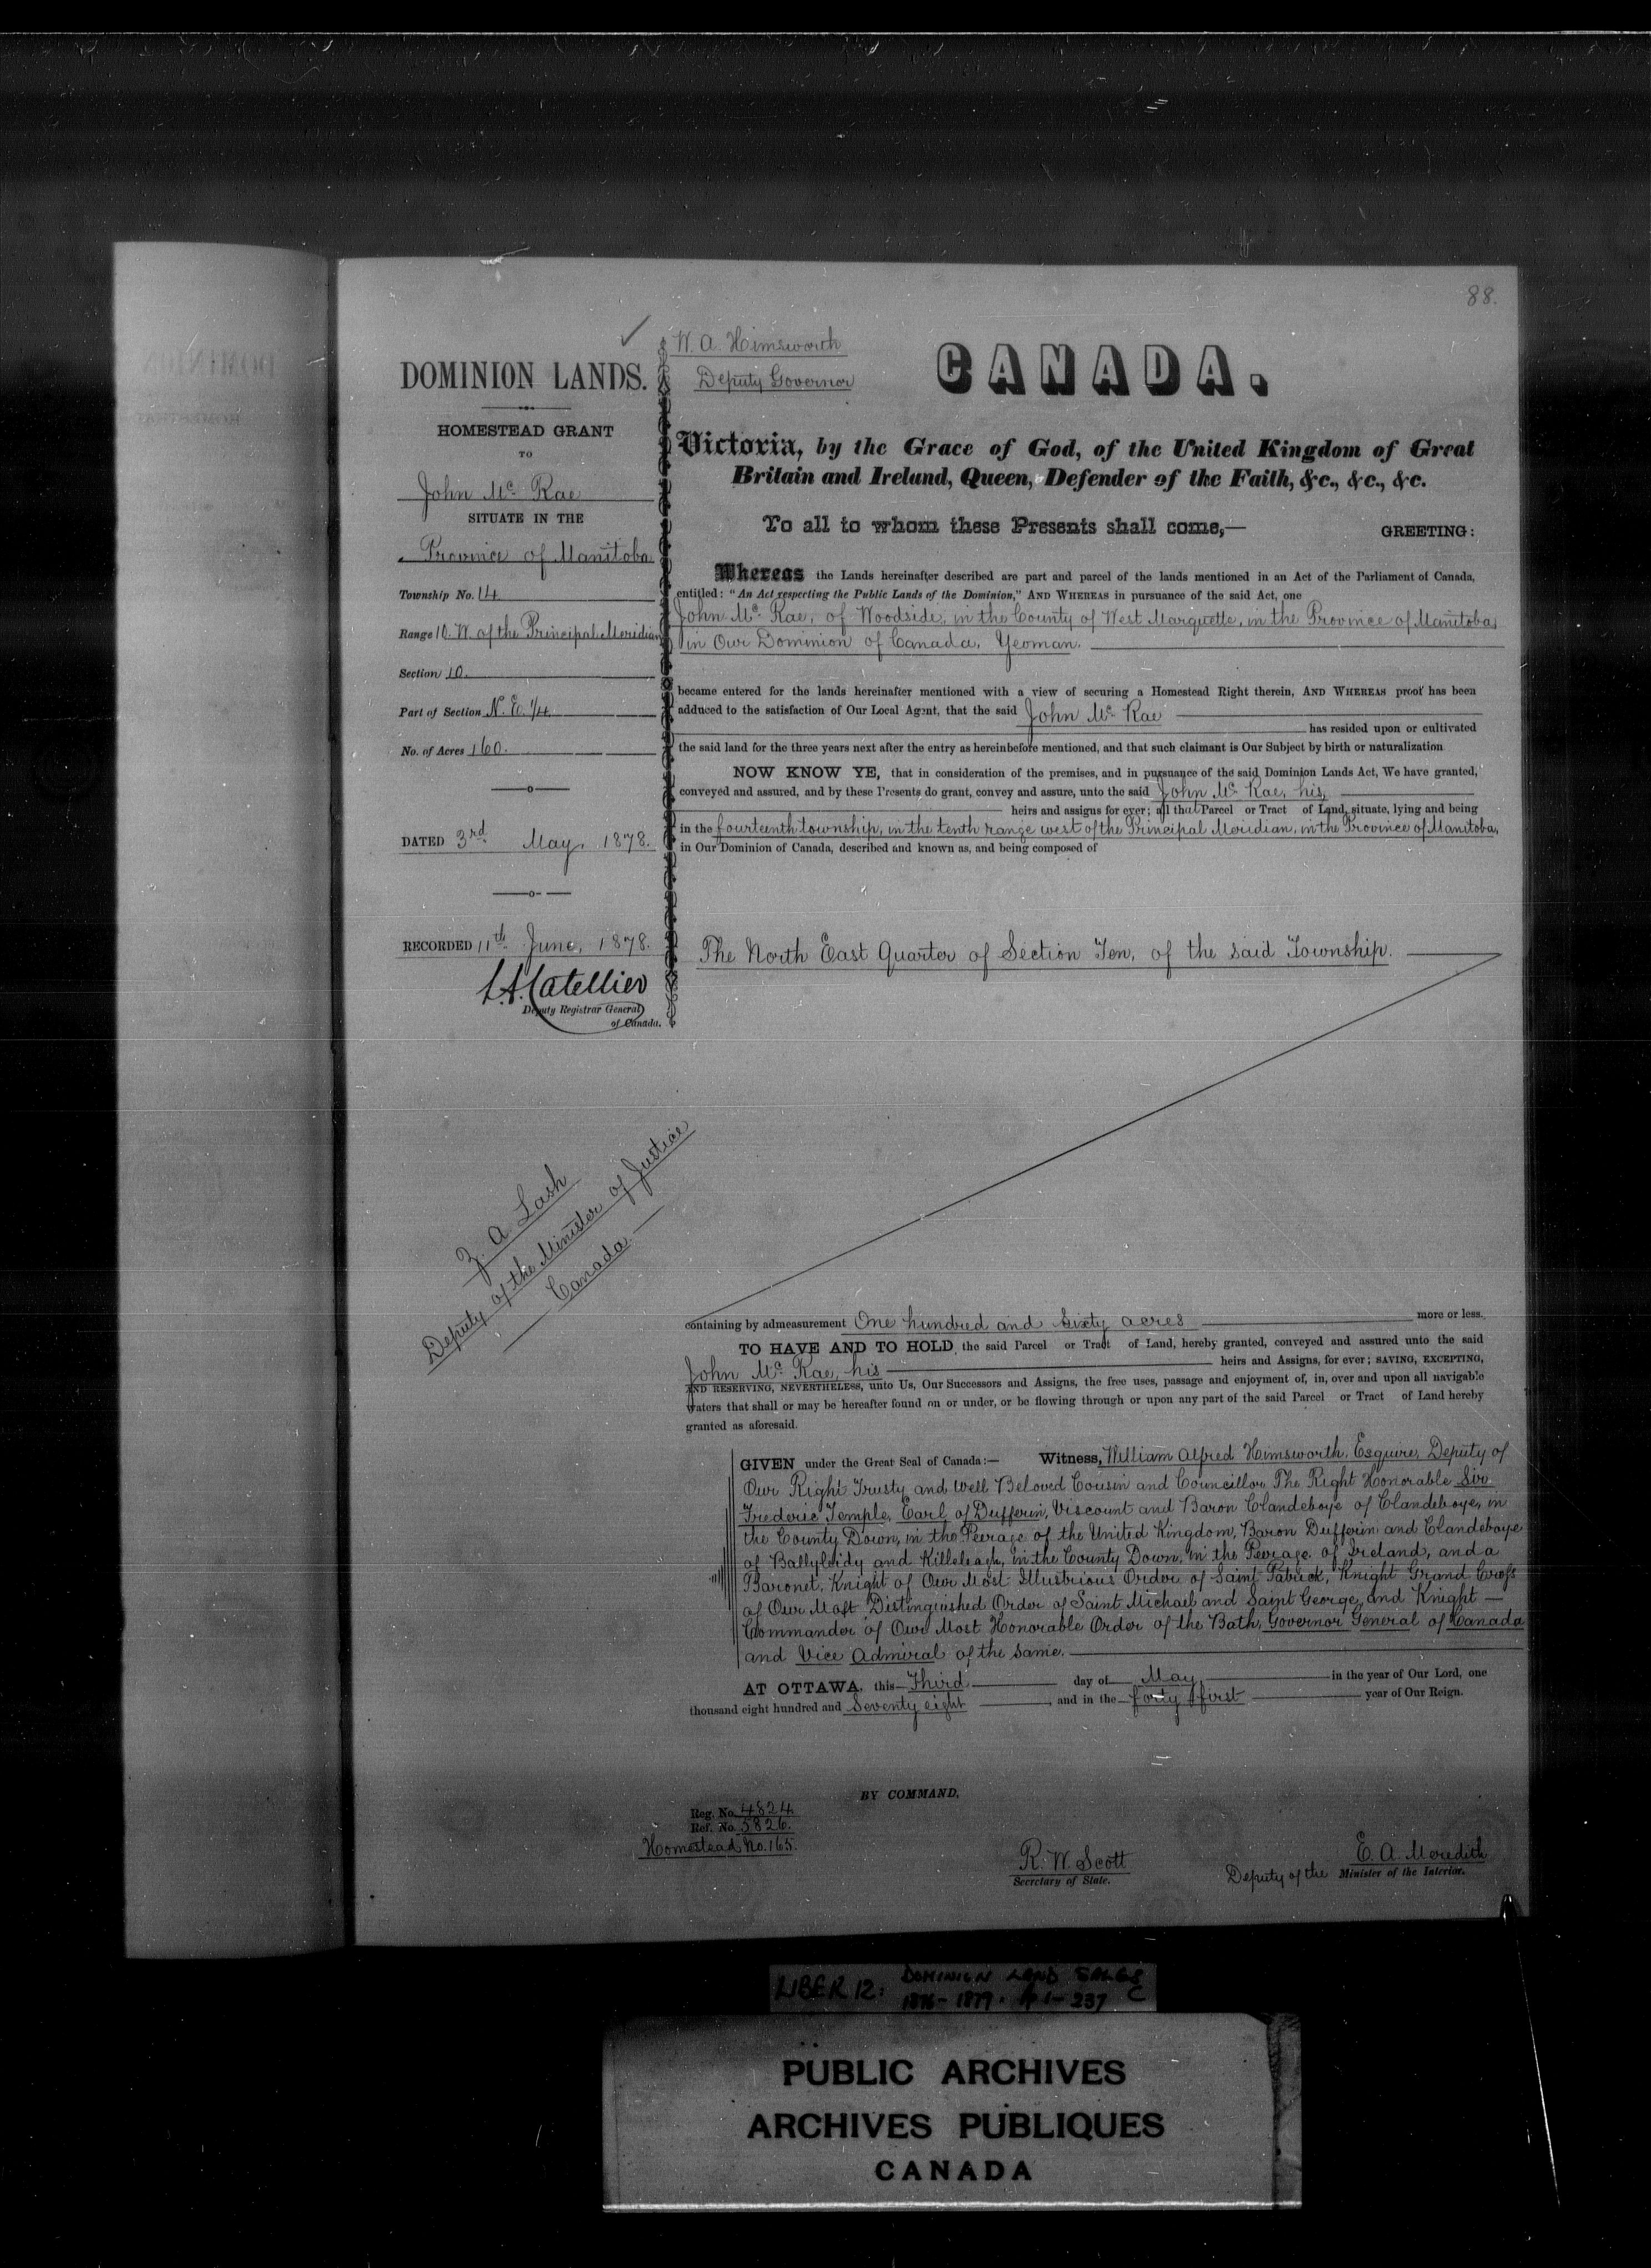 88.
W. A. Himsworth
Deputy Governor
CANADA.
DOMINION LANDS.
HOMESTEAD GRANT
TO
John Mc Rae
SITUATE IN THE
Province of Manitoba
Township No. 14
Range 10. W. of the Principal Meridian
Section 10.
Part of Section N. E. 1/4
No. of Acres 160.
DATED 3rd May, 1878.
RECORDED 11th June, 1878.
L. A. Catellier
Deputy Registrar General
of Canada.
Z. A. Lash
Deputy of the Minister of Justice
Canada
Victoria, by the Grace of God, of the United Kingdom of Great
Britain and Ireland, Queen, Defender of the Faith, &c., &c., &c.
To all to whom these Presents shall come,—
GREETING:
Whereas the Lands hereinafter described are part and parcel of the lands mentioned in an Act of the Parliament of Canada,
entitled: "An Act respecting the Public Lands of the Dominion," AND WHEREAS in pursuance of the said Act, one
John Mc Rae, of Woodside, in the County of West Marquette, in the Province of Manitoba,
in Our Dominion of Canada, Yeoman.
became entered for the lands hereinafter mentioned with a view of securing a Homestead Right therein, AND WHEREAS proof has been
adduced to the satisfaction of Our Local Agent, that the said John Mc Rae
has resided upon or cultivated
the said land for the three years next after the entry as hereinbefore mentioned, and that such claimant is Our Subject by birth or naturalization
NOW KNOW YE, that in consideration of the premises, and in pursuance of the said Dominion Lands Act, We have granted,
conveyed and assured, and by these Presents do grant, convey and assure, unto the said John Mc Rae, his
heirs and assigns for ever; all that Parcel or Tract of Land, situate, lying and being
in the fourteenth township, in the tenth range west of the Principal Meridian, in the Province of Manitoba,
in Our Dominion of Canada, described and known as, and being composed of
The North East Quarter of Section Ten, of the said Township.
containing by admeasurement One hundred and Sixty acres more or less.
TO HAVE AND TO HOLD the said Parcel or Tract of Land, hereby granted, conveyed and assured unto the said
John Mc Rae, his heirs and Assigns, for ever; SAVING, EXCEPTING,
AND RESERVING, NEVERTHELESS, unto Us, Our Successors and Assigns, the free uses, passage and enjoyment of, in, over and upon all navigable
waters that shall or may be hereafter found on or under, or be flowing through or upon any part of the said Parcel or Tract of Land hereby
granted as aforesaid.
GIVEN under the Great Seal of Canada:— Witness, William Alfred Himsworth, Esquire, Deputy of
Our Right Trusty and Well Beloved Cousin and Councillor The Right Honorable Sir
Frederic Temple, Earl of Dufferin, Viscount and Baron Clandeboye of Clandeboye, in
the County Down, in the Peerage of the United Kingdom, Baron Dufferin and Clandeboye
of Ballyleidy and Killeleagh, in the County Down, in the Peerage of Ireland, and a
Baronet, Knight of Our Most Illustrious Order of Saint Patrick, Knight Grand Cross
of Our Most Distinguished Order of Saint Michael and Saint George, and Knight
Commander of Our Most Honorable Order of the Bath, Governor General of Canada
and Vice Admiral of the same.
AT OTTAWA, this Third day of May in the year of Our Lord, one
thousand eight hundred and Seventy eight, and in the forty first year of Our Reign.
BY COMMAND,
Reg. No. 4824
Ref. No. 5826.
Homestead No. 165.
R. W. Scott
Secretary of State.
E. A. Meredith
Deputy of the Minister of the Interior.
LIBER 12: DOMINION LAND SALES C
1876-1879. pp 1-237
PUBLIC ARCHIVES
ARCHIVES PUBLIQUES
CANADA